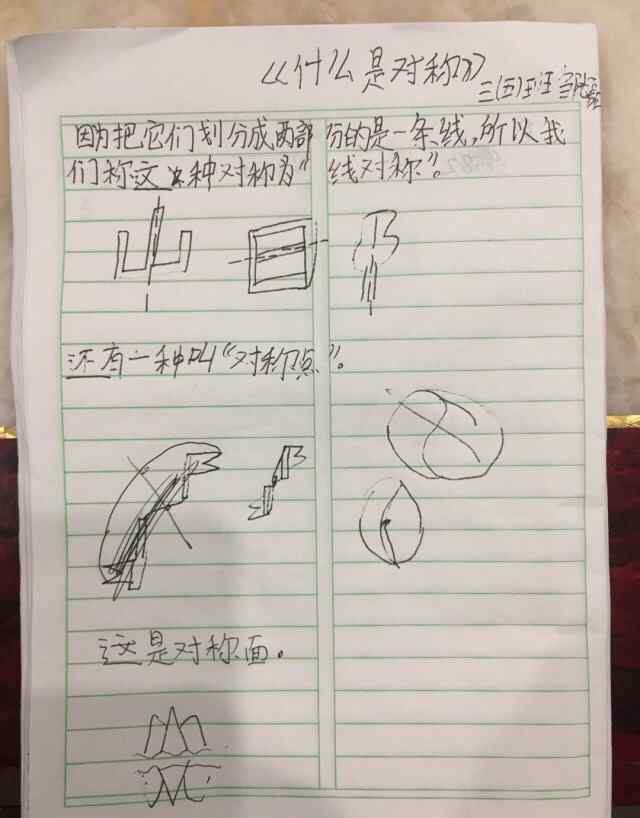 《什么是对称》
三(五)班
因为把它们划分成两部分的是一条线,所以我
们称这种对称为“线对称”。
还有一种叫“对称点”。
这是对称面。